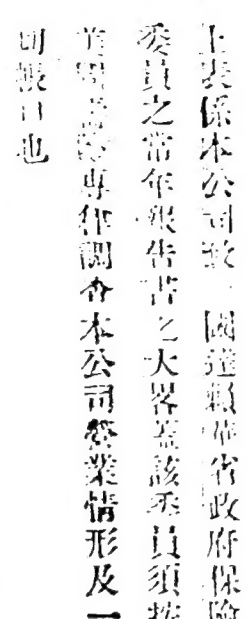 上表係本公司致 國達賴華省政府保險
委員之常年報告書之大畧蓋該委員須按
專律調查本公司營業情形及一
切賬目也